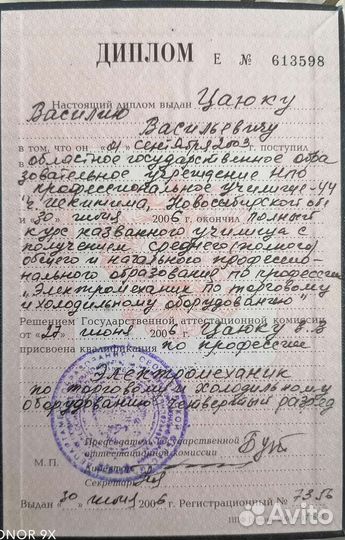 ДИПЛОМ Е № 613598
Настоящий диплом выдан Цаюку
Василию
Васильевичу
в том, что он «01» сентября 2003 г. поступил
в областное государственное обра
зовательное учреждение НПО
профессиональное училище-44
г. Искитима, Новосибирской обл
и «30» июня 2006 г. окончил полный
курс названного училища с
получением среднего (полного)
общего и начального профессио-
нального образования по профессии
„Электромеханик по торговому
и холодильному оборудованию"
Решением Государственной аттестационной комиссии
от июня 2006 г. Цаюку В.В
присвоена квалификация по профессии
Электромеханик
по торговому и холодильному
оборудованию четвертый разряд
Председатель Государственной
аттестационной комиссии
Директор
М.П.
Секретарь
Выдан «30» июня 2006 г. Регистрационный № 7356
HONOR 9X
Avito